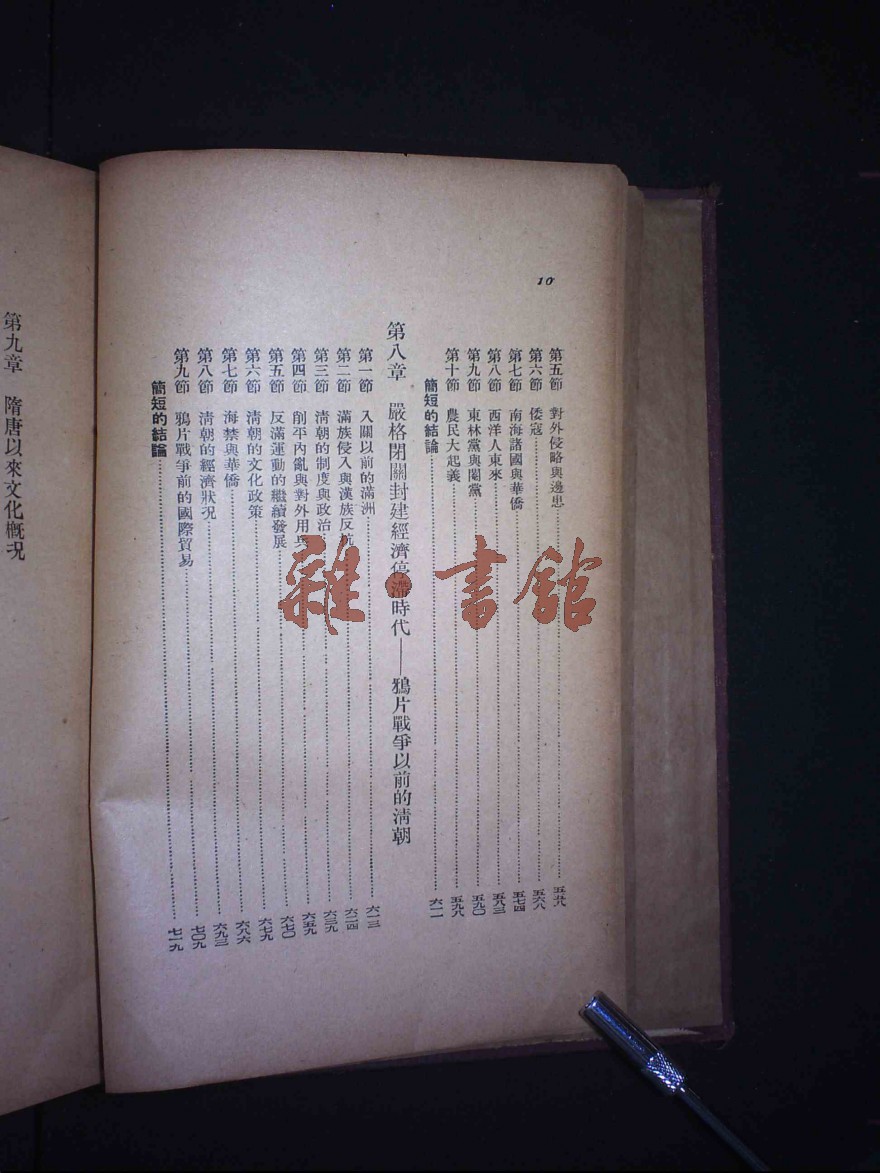 10
第五節 對外侵略與邊患
第六節 倭寇 五六八
第七節 南海諸國與華僑 五七四
第八節 西洋人東來 五八三
第九節 東林黨與閹黨 五九〇
第十節 農民大起義 五九八
簡短的結論 六一一
第八章 嚴格閉關封建經濟停滯時代——鴉片戰爭以前的清朝
第一節 入關以前的滿洲 六一三
第二節 滿族侵入與漢族反抗 六二四
第三節 清朝的制度與政治 六三九
第四節 削平內亂與對外用兵 六五九
第五節 反滿運動的繼續發展 六七〇
第六節 清朝的文化政策 六七九
第七節 海禁與華僑 六八六
第八節 清朝的經濟狀況 六九三
第九節 鴉片戰爭前的國際貿易 七〇九
簡短的結論 七一九
第九章 隋唐以來文化概況
雜·書館